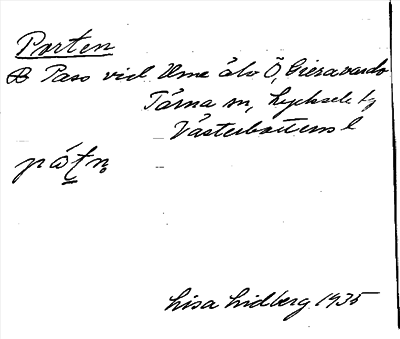 Porten
Pass vid Ume älv Ö, Gieravardo
Tärna sn, Lycksele tg
Västerbottens l
Lisa Lidberg 1935